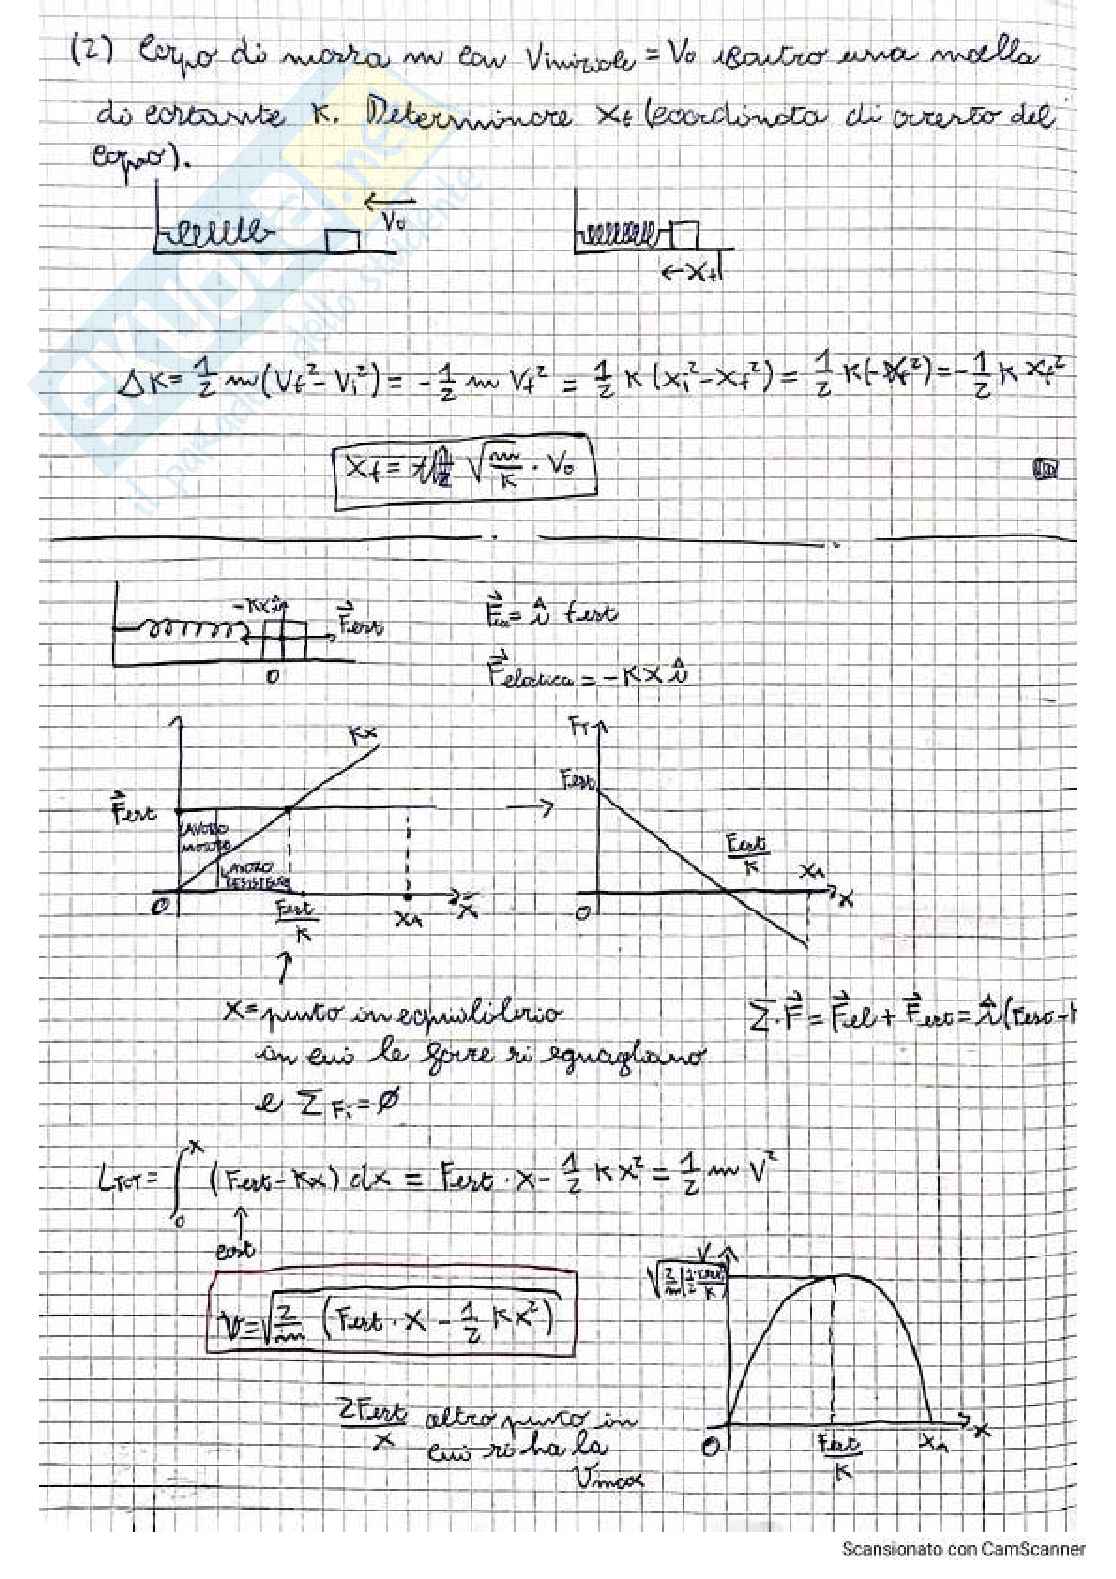 (2) Corpo di massa m con Viniziale = V0 contro una molla
di costante K. Determinare xf (coordinata di arresto del
corpo).
V0
← xf
ΔK = 1/2 m (Vf² - Vi²) = - 1/2 m Vf² = 1/2 K (xi² - xf²) = 1/2 K (-xf²) = - 1/2 K xf²
xf = √(m/K) · V0
-Kx î
F⃗est
0
= î fest
F⃗elastica = -Kx î
Kx
F⃗est
LAVORO
MOTORE
LAVORO
RESISTENTE
0
Fest/K
xA
x
FT
Fest
Fest/K
xA
0
x
x = punto in equilibrio
in cui le forze si eguagliano
e Σ Fi = Ø
Σ F⃗ = F⃗el + F⃗est = î (Fest -
LTOT = ∫0^x (Fest - Kx) dx = Fest · x - 1/2 K x² = 1/2 m V²
cost
V = √(2/m (Fest · x - 1/2 K x²))
V
0
Fest/K
xA
x
2Fest/x altro punto in
cui si ha la
Vmax
Scansionato con CamScanner
SKUOLA.net
il paradiso dello studente